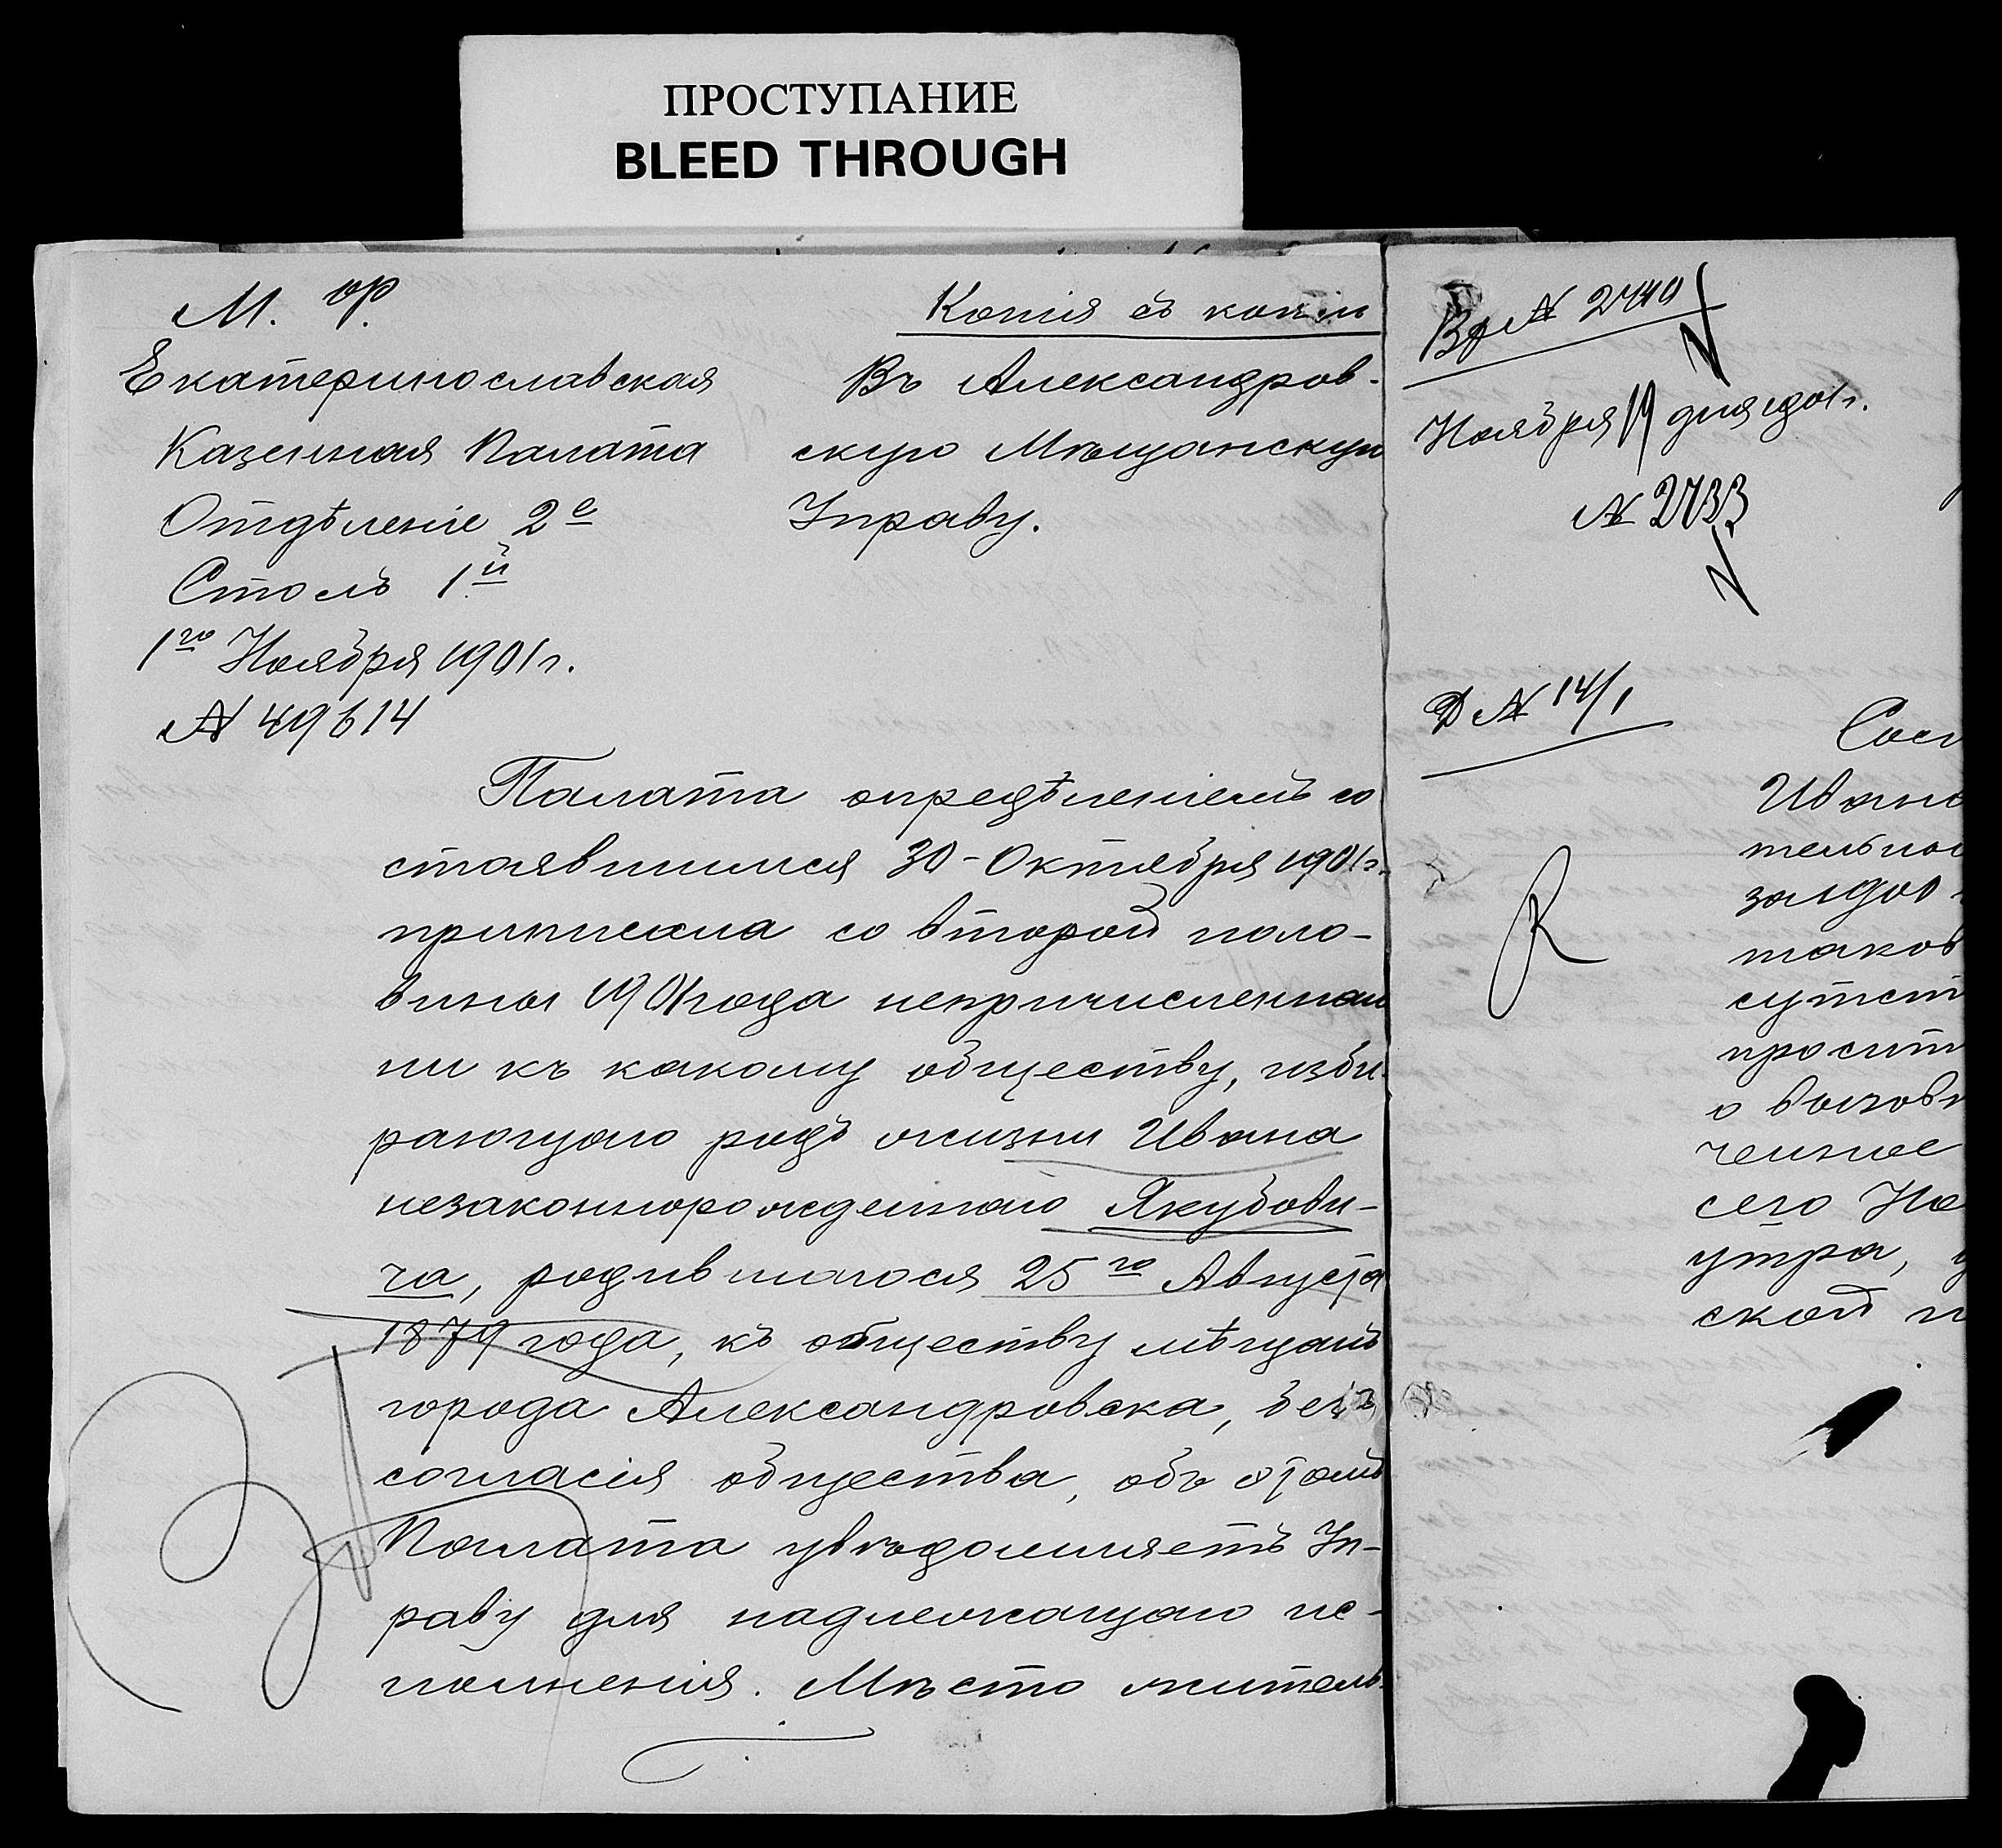 ПРОСТУПАНИЕ
BLEED THROUGH
М. Ф.
Екатеринославская
Казенная Палата
Отдѣленіе 2е
Столъ 1й
1го Ноября 1901 г.
№ 49614
Копія съ копіи
Въ Александров-
скую Мѣщанскую
Управу.
Палата опредѣленіемъ со
стоявшимся 30-Октября 1901 г.
приписала со второй поло-
вины 1901 года непричисленнаго
ни къ какому обществу, изби-
рающаго родъ жизни Ивана
незаконнорожденнаго Якубови-
ча, родившагося 25го Августа
1879 года, къ обществу мѣщанъ
города Александровска, безъ
согласія общества, объ этомъ
Палата увѣдомляетъ Уп-
раву для надлежащаго ис-
полненія. Мѣсто житель-
Вх № 2440
Ноября 19 дня 1901 г.
№ 2733
Д № 14/1
Сост
Ивано
тельно
заявл
таков
сутст
просит
о вызов
ченное
сего Но
утра, у
ской п